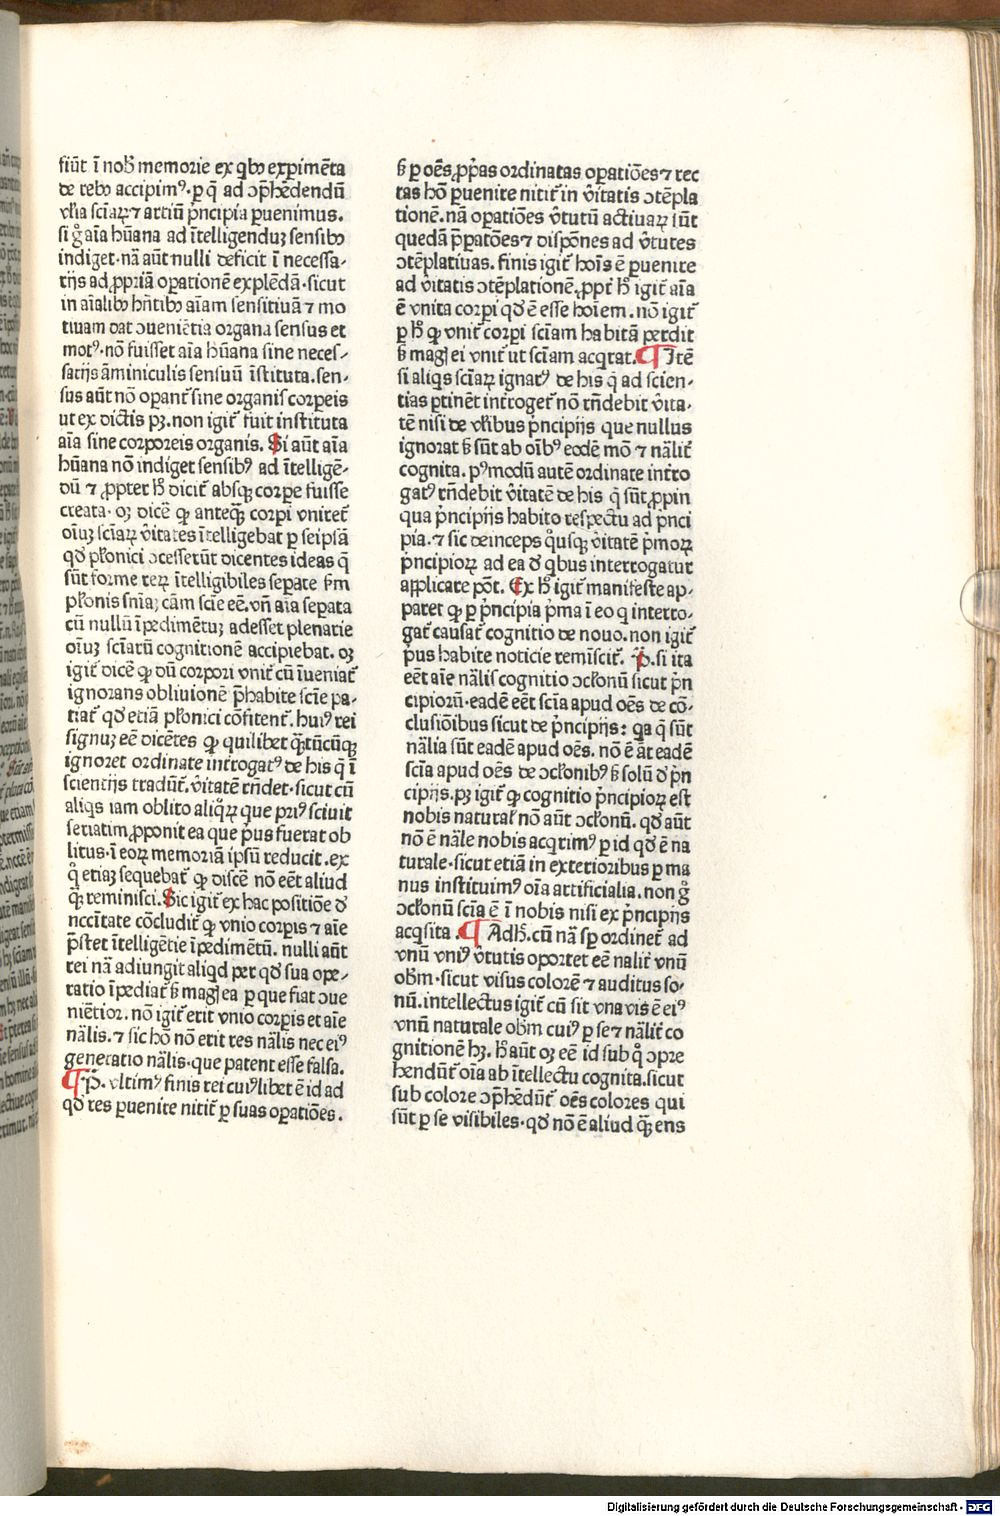 fiūt ī nob̄ memorie ex qbꝫ exꝑimēta
de rebꝫ accipimꝰ. ꝑ q̄ ad ↄp̄hēdendū
vl̄ia sciaꝝ ⁊ artiū p̄ncipia ꝑuenimus.
si gͦ aīa hūana ad ītelligenduꝫ sensibꝫ
indiget. nā aūt nulli deficit ī necessa-
rijs ad ꝓpriā oꝑationē explēdā. sicut
in aīalibꝫ hn̄tibꝫ aīam sensitiuā ⁊ mo
tiuam dat ↄueniētia organa sensus et
motꝰ. nō fuisset aīa hūana sine neces-
sarijs āminiculis sensuū īstituta. sen-
sus aūt nō oꝑant̄ sine organis corꝑeis
ut ex dictis pꝫ. non igit̄ fuit instituta
aīa sine corporeis organis. Si aūt aīa
hūana nō indiget sensibꝰ ad ītelligē-
dū ⁊ ꝓpter hͦ dicit̄ absqꝫ corꝑe fuisse
creata. oꝫ dicē ꝙ anteq̄ꝫ corpi vniret̄
oīuꝫ sciaꝝ v̄itates ītelligebat ꝑ seipsā
qd̄ pl̄onici ↄcesserūt dicentes ideas q̄
sūt forme reꝝ ītelligibiles seꝑate ẜm
pl̄onis sn̄iaꝫ cām scīe eē. vn̄ aīa seꝑata
cū nullū īpedimētuꝫ adesset plenarie
oīuꝫ sciarū cognitionē accipiebat. oꝫ
igit̄ dicē ꝙ dū corpori vnit̄ cū īueniat̄
ignorans obliuionē p̄habite scīe pa-
tiat̄ qd̄ etiā pl̄onici cōfitent̄. huiꝰ rei
signuꝫ eē dicētes ꝙ quilibet q̄ꝫtūcūqꝫ
ignoret ordinate intrrogatꝰ de his q̄ ī
scientijs tradūt̄. v̄itatē rn̄det. sicut cū
aliqs iam oblito aliq̄ꝝ que priꝰ sciuit
seriatim ꝓponit ea que p̄us fuerat ob
litus. ī eoꝝ memoriā ipsū reducit. ex
qͦ etiaꝫ sequebat̄ ꝙ discē nō eēt aliud
q̄ꝫ reminisci. Sic igit̄ ex hac positiōe d̄
nccītate cōcludit̄ ꝙ vnio corꝑis ⁊ aīe
p̄stet ītelligētie īpedimētū. nulli aūt
rei nā adiungit aliqd ꝑpter qd̄ sua oꝑe-
ratio īpediat̄ ẜ magꝭ ea ꝑ que fiat ↄue
niētior. nō igit̄ erit vnio corꝑis et aīe
nālis. ⁊ sic hō nō erit res nālis nec eiꝰ
generatio nālis. que patent esse falsa.
¶ P̄. vltimꝰ finis rei cuiꝰlibet ē id ad
qd̄ res ꝑuenire nitit̄ ꝑ suas oꝑatiōes.
ẜ ꝑ oēs ꝓp̄as ordinatas oꝑatiōes ⁊ rec
tas hō ꝑuenire nitit̄ in v̄itatis ↄtēpla
tionē. nā oꝑatiōes v̄tutū actiuaꝝ sūt
quedā p̄ꝑatōes ⁊ dispōnes ad v̄tutes
ↄtēplatiuas. finis igit̄ hoīs ē ꝑuenire
ad v̄itatis ↄtēplationē. ꝓpt̄ hͦ igit̄ aīa
ē vnita corpi qd̄ ē esse hoīem. nō igit̄
ꝑ hͦ ꝙ vnit̄ corpi sciam habitā perdit
ẜ magꝭ ei vnit̄ ut sciam acqrat. ¶ Itē
si aliqs sciaꝝ ignarꝰ de his q̄ ad scien-
tias ꝑtinēt intrroget̄ nō rn̄debit v̄ita-
tē nisi de vl̄ibus p̄ncipijs que nullus
ignorat ẜ sūt ab oībꝰ eodē mō ⁊ nālit̄
cognita. pꝰmodū autē ordinate intrro
gatꝰ rn̄debit v̄itatē de his q̄ sūt ꝓpin
qua p̄ncipijs habito respectu ad p̄nci
pia. ⁊ sic deinceps qͦusqꝫ v̄itatē p̄moꝝ
p̄ncipioꝝ ad ea d̄ qbus interrogatur
applicare pōt. Ex hͦ igit̄ manifeste ap-
paret ꝙ ꝑ p̄ncipia p̄ma ī eo q interro-
gat̄ causat̄ cognitio de nouo. non igit̄
p̄us habite noticie remīscit̄. P̄. si ita
eēt aīe nālis cognitio ↄcl̄onū sicut p̄n
cipiorū. eadē eēt scīa apud oēs de cō-
clusiōibus sicut de p̄ncipijs: qa q̄ sūt
nālia sūt eadē apud oēs. nō ē āt eadē
scīa apud oēs de ↄcl̄onibꝰ ẜ solū d̄ p̄n
cipijs. pꝫ igit̄ ꝙ cognitio p̄ncipioꝝ est
nobis natural̄ nō aūt ↄcl̄onū. qd̄ aūt
nō ē nāle nobis acqrimꝰ ꝑ id qd̄ ē na
turale. sicut etiā in exterioribus ꝑ ma
nus instituimꝰ oīa artificialia. non gͦ
ↄcl̄onū scīa ē ī nobis nisi ex p̄ncipijs
acqsita. ¶ Adh̄. cū nā sꝑ ordinet̄ ad
vnū vniꝰ v̄tutis oportet eē nalit̄ vnū
ob̄m. sicut visus colorē ⁊ auditus so-
nū. intellectus igit̄ cū sit vna vis ē eiꝰ
vnū naturale ob̄m cuiꝰ ꝑ se ⁊ nālit̄ co
gnitionē hꝫ. hͦ aūt oꝫ eē id sub qͦ ↄpre
hendūt̄ oīa ab ītellectu cognita. sicut
sub colore ↄp̄hēdūt̄ oēs colores qui
sūt ꝑ se visibiles. qd̄ nō ē aliud q̄ꝫ ens
Digitalisierung gefördert durch die Deutsche Forschungsgemeinschaft - DFG